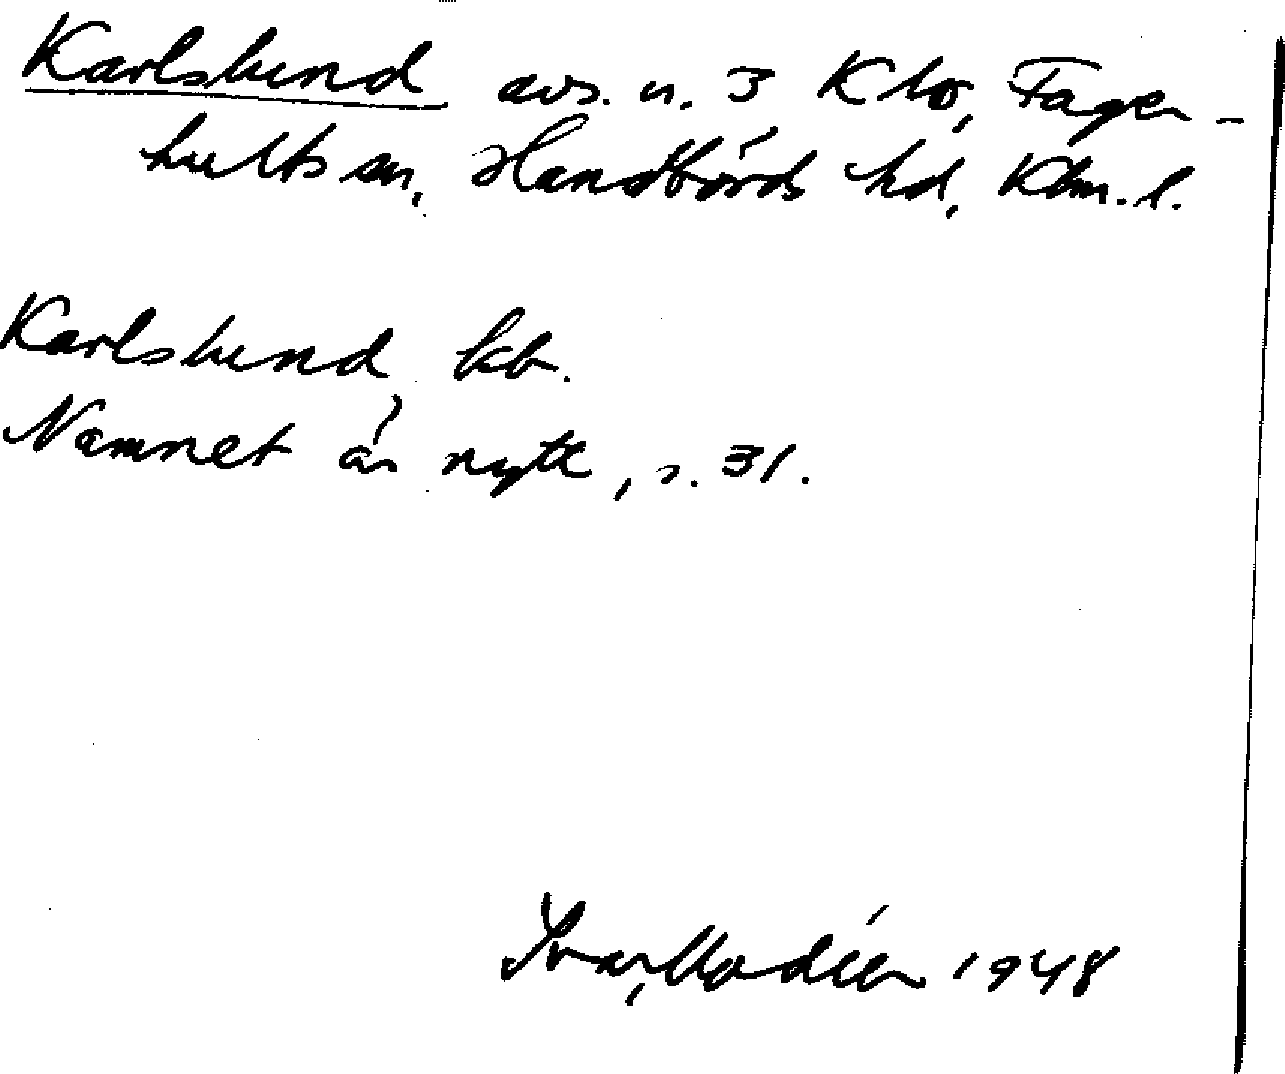 Karlslund avs. u. 3 Klo, Fager-
hults sn, Handbörds hd, Klm. l.
Karlslund, kb.
Namnet är nytt, s. 31.
Ivar Modéer 1948